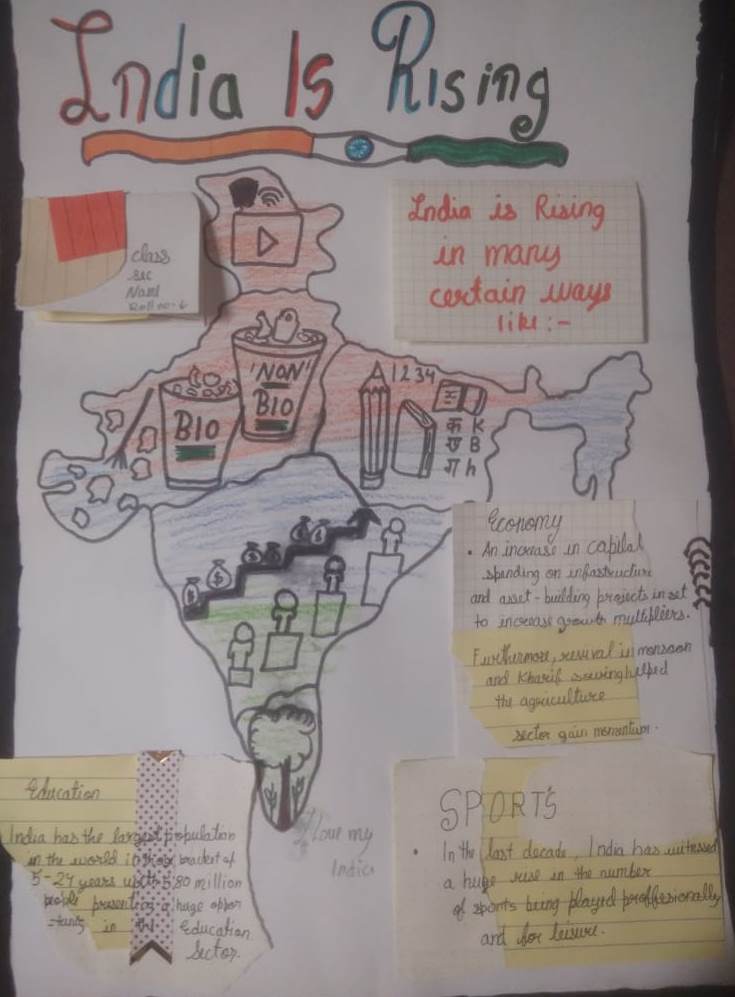 India Is Rising
class
sec
Name
Roll no-6
India is Rising
in many
certain ways
like :-
'NON'
BIO
BIO
1 2 3 4
क K
ख B
ग h
$ $
Economy
• An increase in capital
spending on infastructure
and asset-building projects in set
to increase growth multipliers.
Furthermore, revival in monsoon
and Kharif sowing helped
the agriculture
sector gain momentum.
Education
India has the largest population
in the world in the bracket of
5-24 years with 580 million
people presenting a huge oppor
-tunity in the Education
Sector.
I Love my
India
SPORTS
• In the last decade, India has witnessed
a huge rise in the number
of sports being played proffesionally
and for leisure.